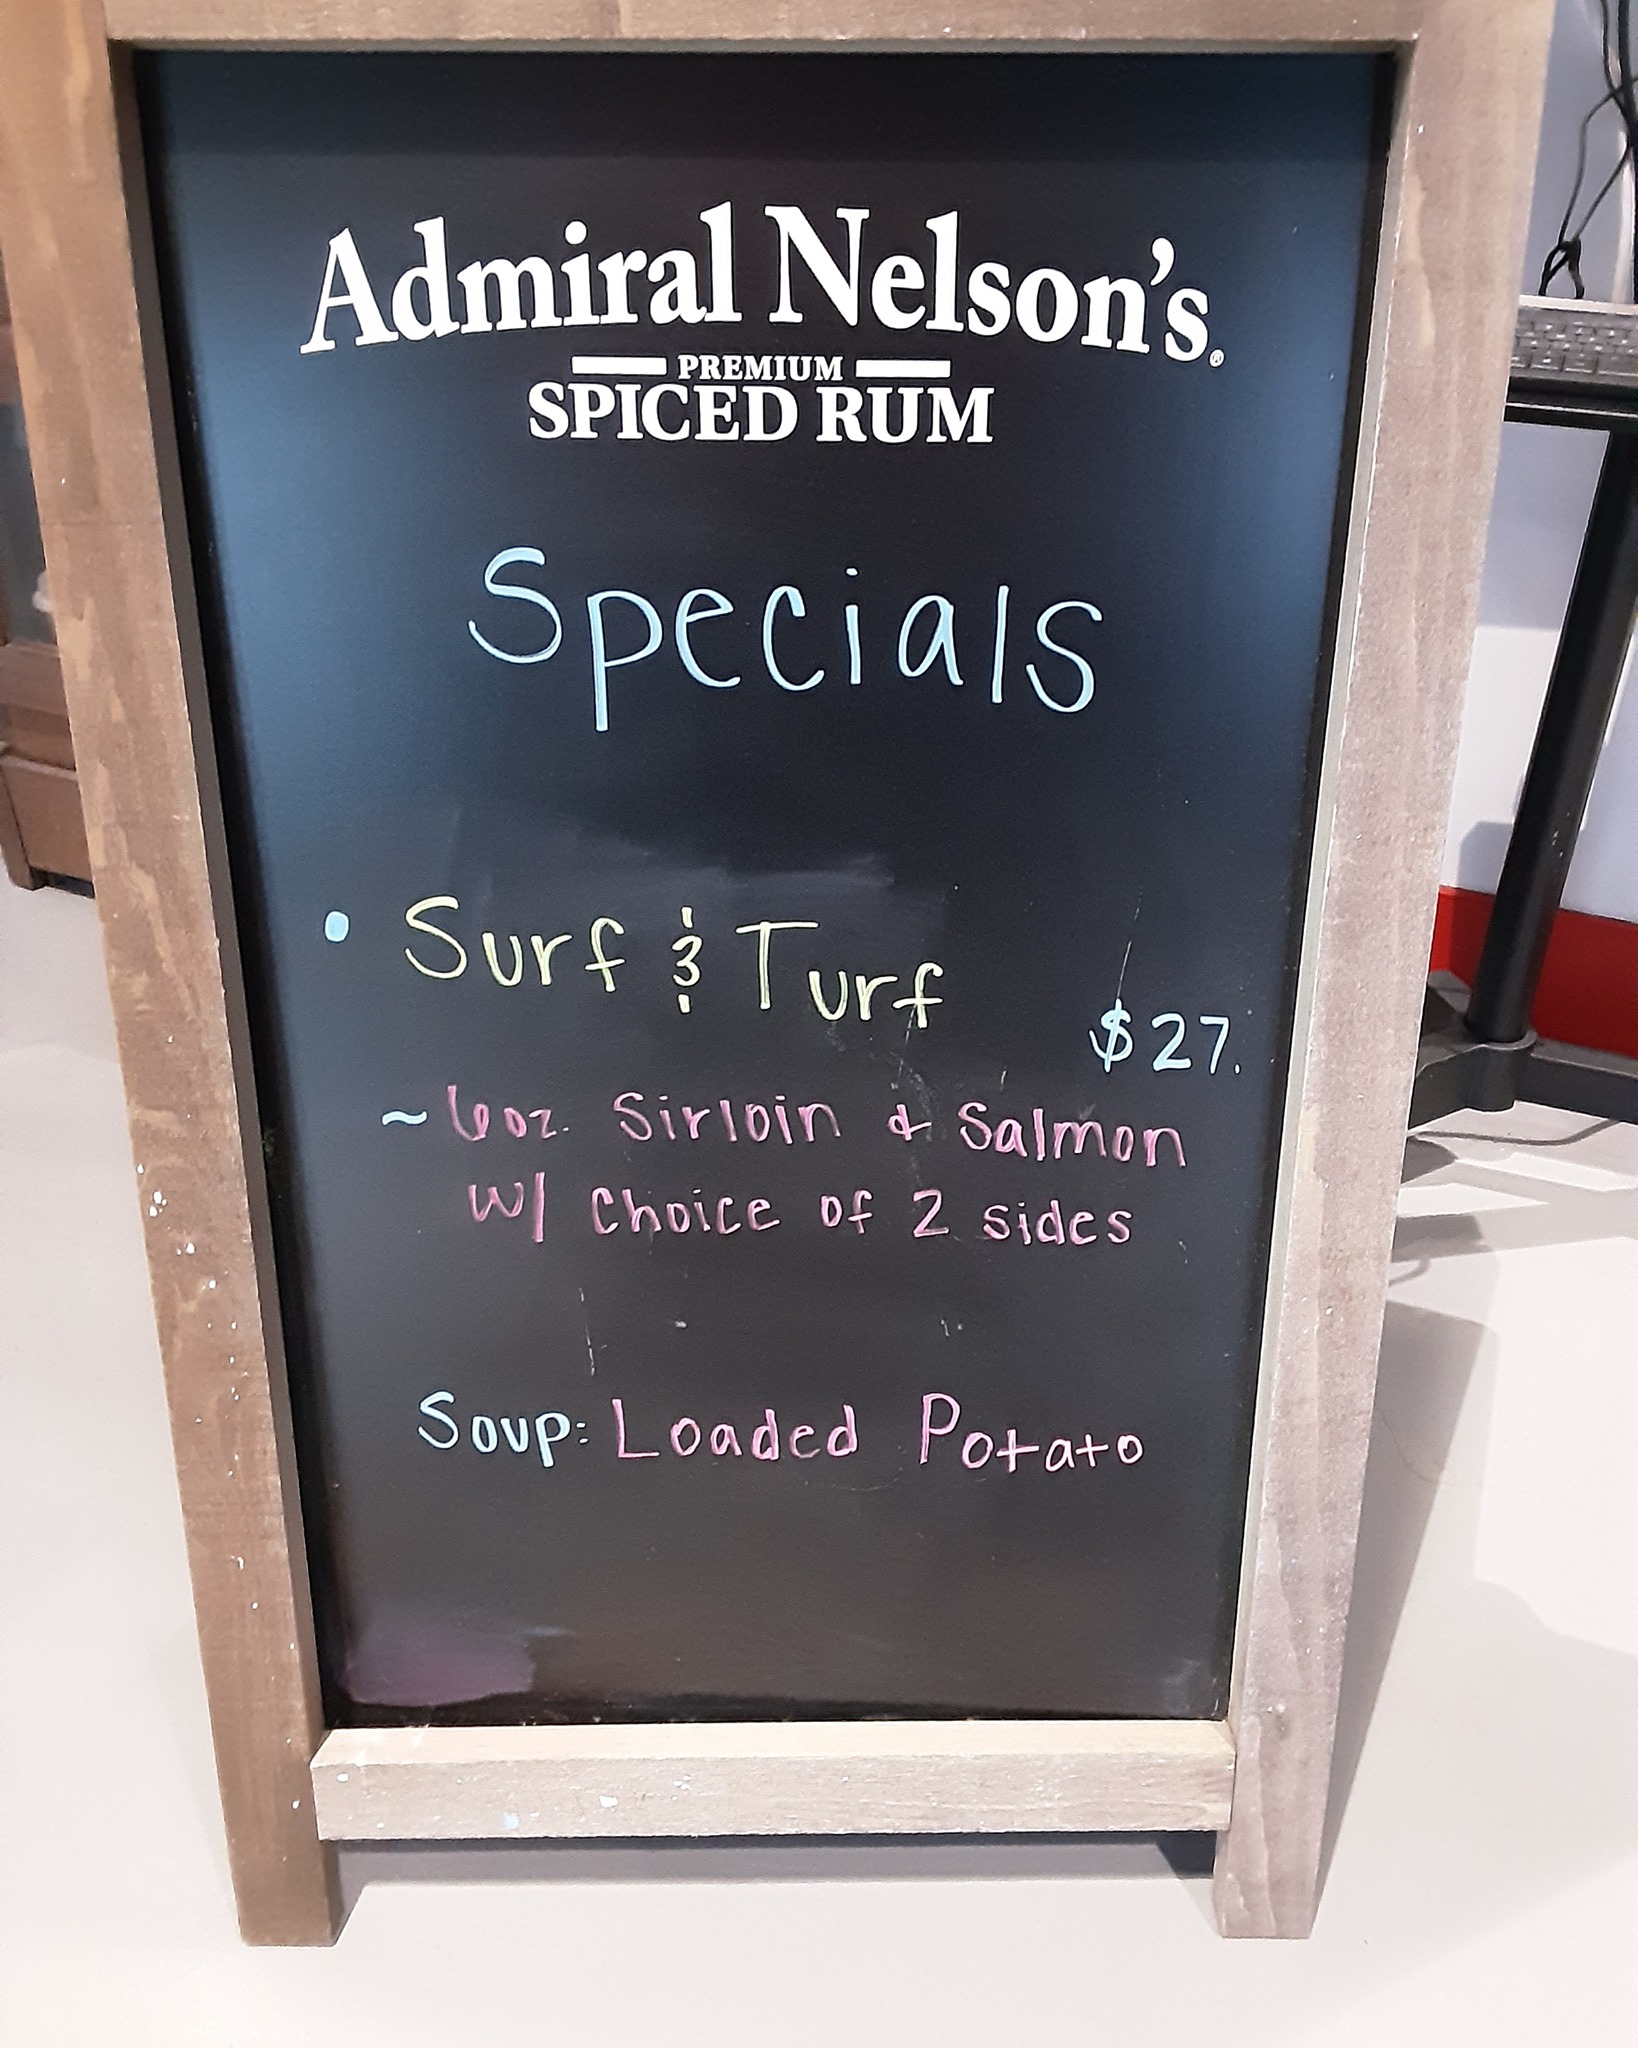 Admiral Nelson's®
PREMIUM
SPICED RUM
Specials
• Surf & Turf
$27.
~ 6oz. Sirloin & Salmon
w/ Choice of 2 sides
Soup: Loaded Potato